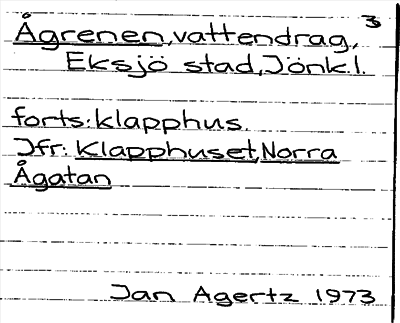 3
Ågrenen, vattendrag,
Eksjö stad, Jönk.l.
forts: klapphus.
Jfr: Klapphuset, Norra
Ågatan
Jan Agertz 1973